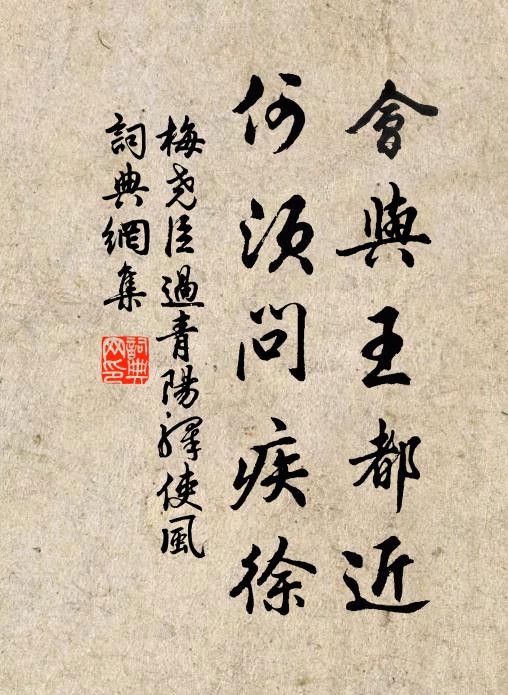 會與王都近
何須問疾徐
梅堯臣過青陽驛使風
詞典網集
詞典
网印